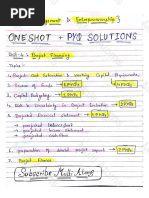 Management & Entrepreneurship }
ONE SHOT + PYQ SOLUTIONS
Unit-4 : Project Financing
Topics -
1. Project Cost Estimation & working Capital Requirements
2. Source of funds
3. Capital Budgeting
4. Risk & Uncertainty in Project Evaluation
5. Projected financial statement
• projected balance sheet
• projected income statement
• projected cashflow
6. preparation of detailed project report
7. Project finance
Subscribe Multi Atoms